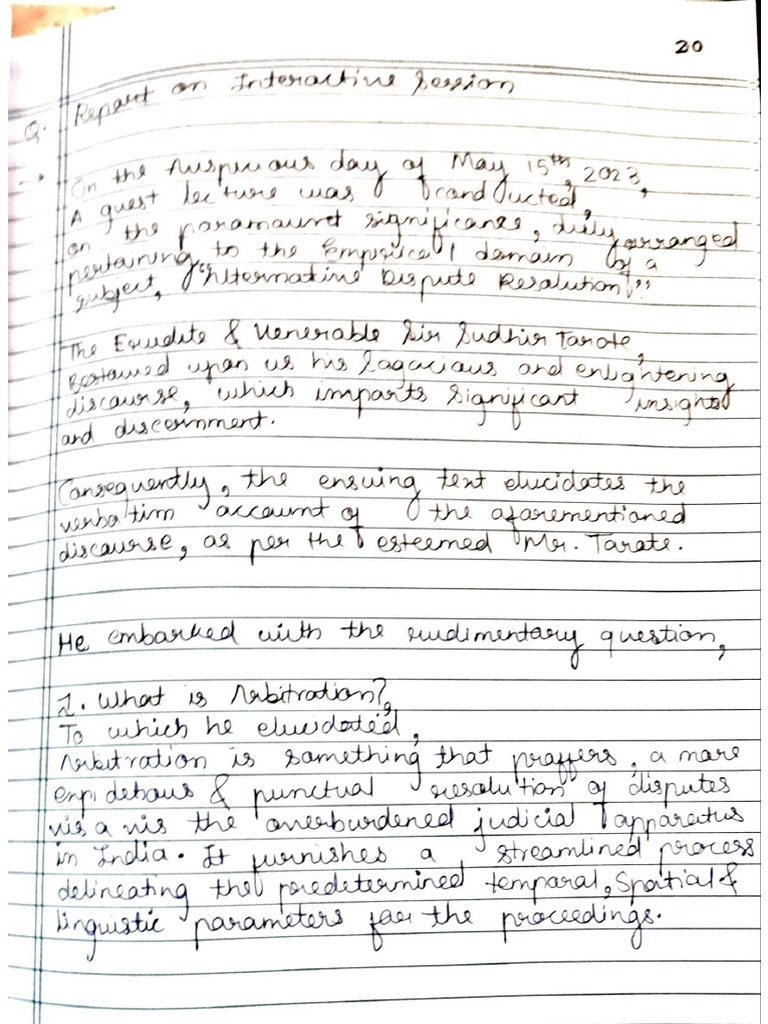 20
Q. Report on Interactive Session
→ On the Auspicious day of May 15th, 2023,
A guest lecture was conducted,
on the paramount significance, duly arranged
pertaining to the Empirical domain of a
subject, "Alternative Dispute Resolution!"
The Erudite & Venerable Sir Sudhir Tarate,
Bestowed upon us his sagacious and enlightening
discourse, which imparts significant insights
and discernment.
Consequently, the ensuing text elucidates the
verbatim account of the aforementioned
discourse, as per the esteemed Mr. Tarate.
He embarked with the rudimentary question,
1. What is Arbitration?,
To which he elucidated,
Arbitration is something that proffers, a more
expidetious & punctual resolution of disputes
vis a vis the overburdened judicial apparatus
in India. It furnishes a streamlined process
delineating the predetermined temporal, spatial &
linguistic parameters for the proceedings.